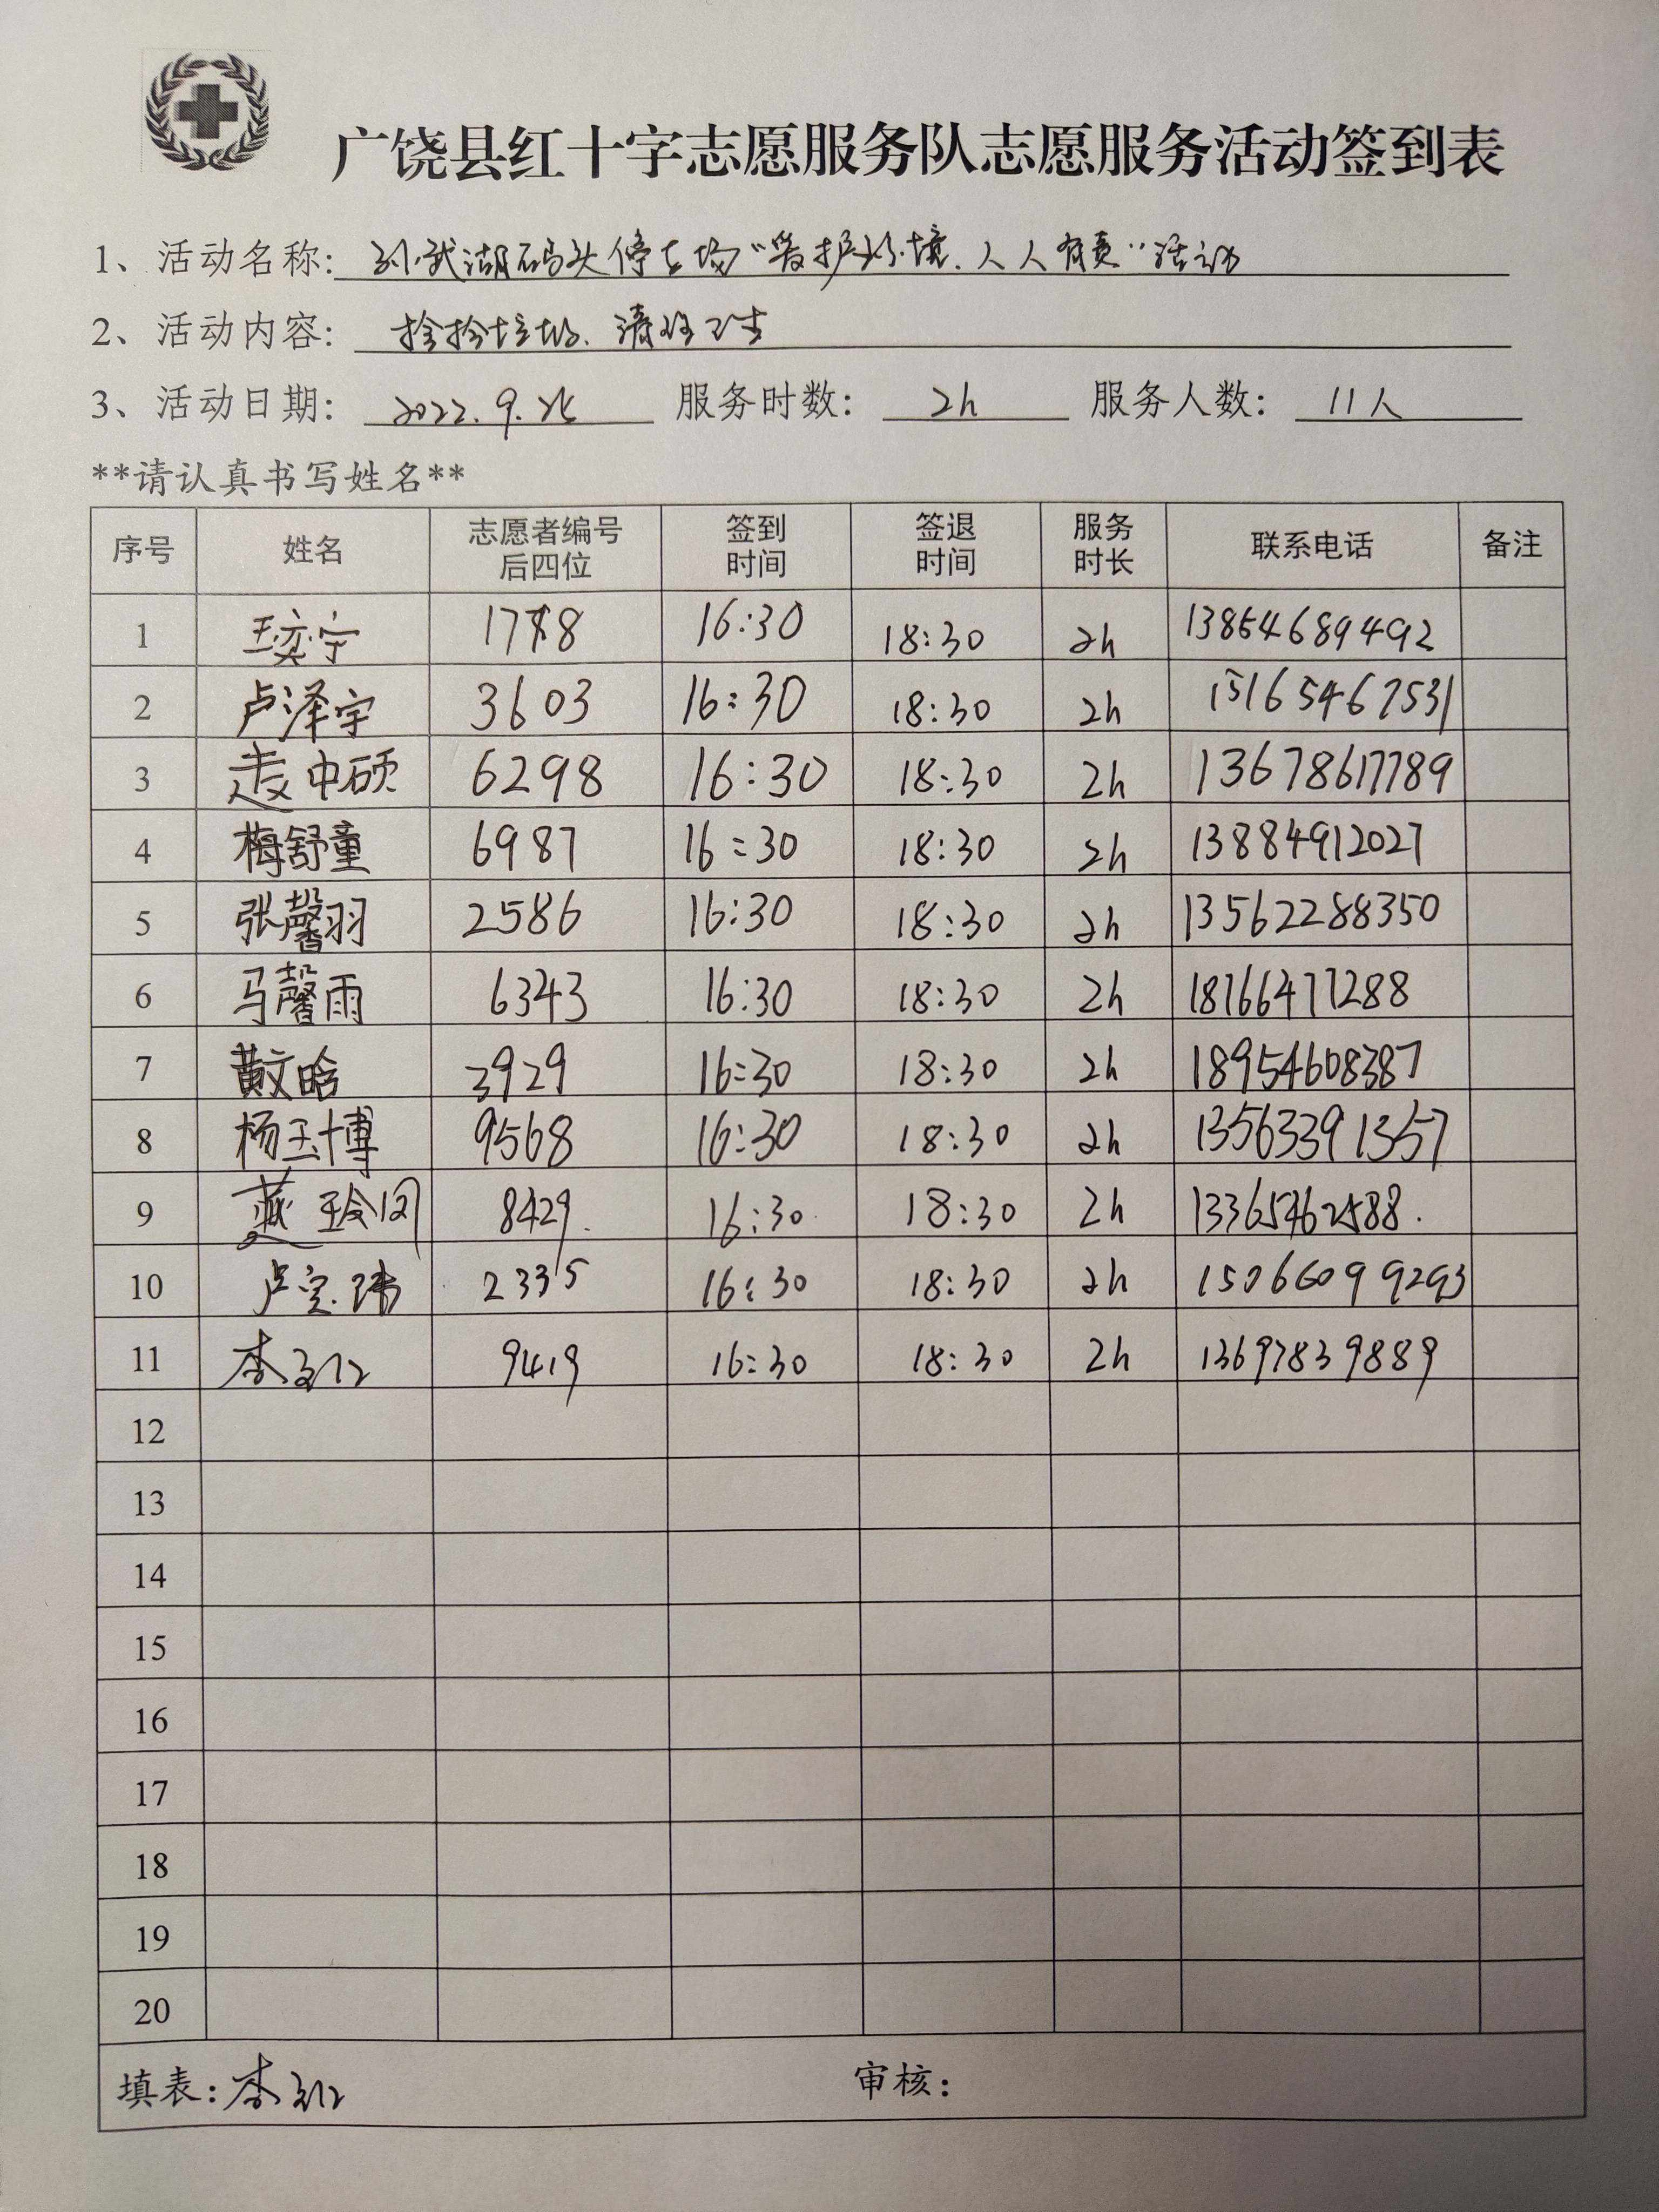 广饶县红十字志愿服务队志愿服务活动签到表
1、活动名称: 孙武湖码头停车场“爱护环境、人人有责”活动
2、活动内容: 捡拾垃圾、清理卫生
3、活动日期: 2022.9.25 服务时数: 2h 服务人数: 11人
**请认真书写姓名**
序号 姓名 志愿者编号后四位 签到时间 签退时间 服务时长 联系电话 备注
1 王奕宁 1788 16:30 18:30 2h 13854689492
2 卢泽宇 3603 16:30 18:30 2h 15165467531
3 赵中硕 6298 16:30 18:30 2h 13678617789
4 梅舒童 6987 16:30 18:30 2h 13884912027
5 张馨羽 2586 16:30 18:30 2h 13562288350
6 马馨雨 6343 16:30 18:30 2h 18766477288
7 黄文晗 3929 16:30 18:30 2h 18954608387
8 杨玉博 9568 16:30 18:30 2h 13563391357
9 燕玲闰 8429 16:30 18:30 2h 13365462588
10 卢宝玮 2335 16:30 18:30 2h 15066099293
11 李 9419 16:30 18:30 2h 13697839889
12
13
14
15
16
17
18
19
20
填表: 李 审核: